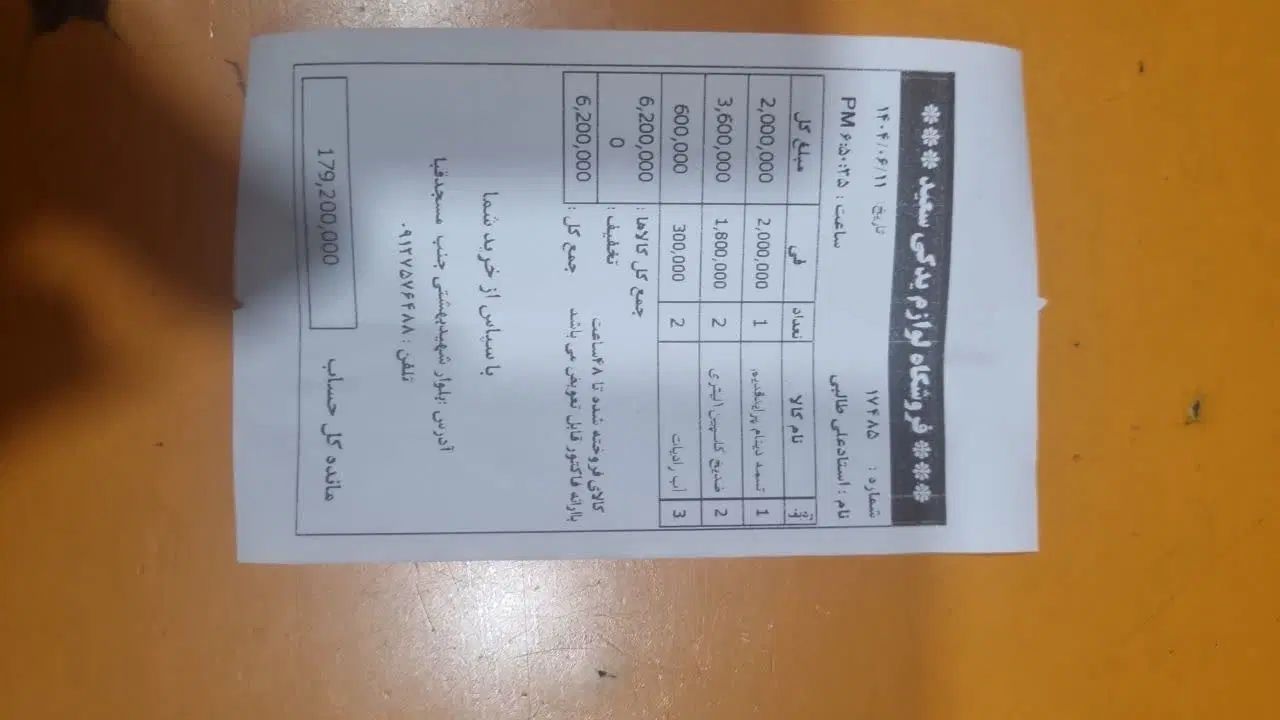 *** فروشگاه لوازم یدکی سعید ***
شماره : ۱۷۴۸۵ تاریخ: ۱۴۰۴/۰۶/۱۱
نام : استادعلی طالبی ساعت : ۶:۵۰:۲۵ PM
نام کالا تعداد فی مبلغ کل
1 تسمه دینام پرایدقدیم 1 2,000,000 2,000,000
2 ضدیخ کاسپین 1لیتری 2 1,800,000 3,600,000
3 آب رادیات 2 300,000 600,000
جمع کل کالاها : 6,200,000
کالای فروخته شده تا ۴۸ساعت تخفیف : 0
باارائه فاکتور قابل تعویض می باشد جمع کل : 6,200,000
با سپاس از خرید شما
آدرس :بلوار شهیدبهشتی جنب مسجدقبا
تلفن : ۰۹۱۲۷۵۷۶۴۸۸
مانده کل حساب 179,200,000